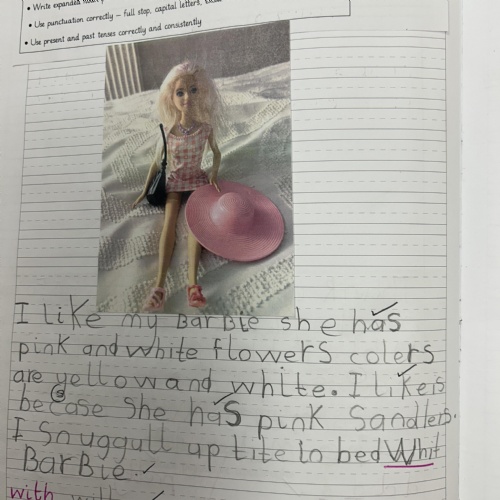 • Write expanded
• Use punctuation correctly – full stop, capital letters,
• Use present and past tenses correctly and consistently
I like my BarBie she has
pink and white flowers colers
are yellow and white. I like is
becase she has pink Sandlers.
I Snuggull up tite in bed Whit
BarBie.
with